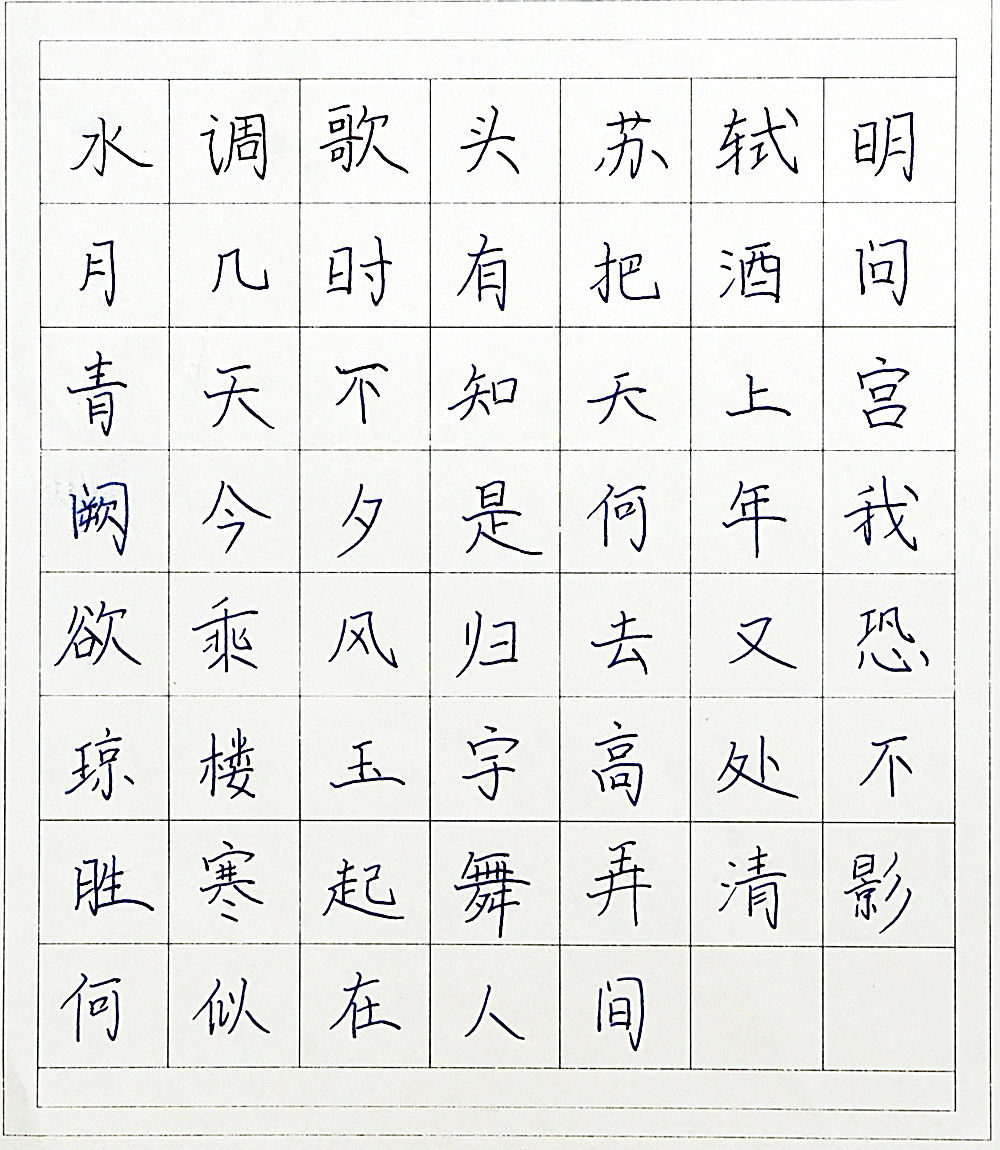 水调歌头苏轼明
月几时有把酒问
青天不知天上宫
阙今夕是何年我
欲乘风归去又恐
琼楼玉宇高处不
胜寒起舞弄清影
何似在人间